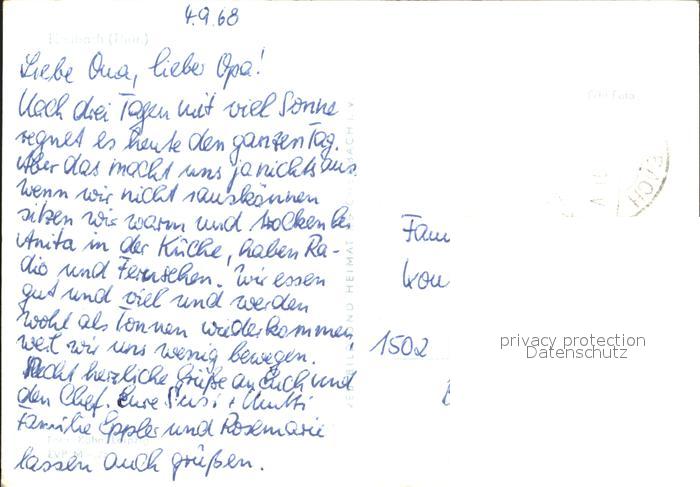 4.9.68
Liebe Oma, lieber Opa!
Nach drei Tagen mit viel Sonne
regnet es heute den ganzen Tag.
Aber das macht uns ja nichts aus,
wenn wir nicht rauskönnen
sitzen wir warm und trocken bei
Anita in der Küche, haben Ra-
dio und Fernsehen. Wir essen
gut und viel und werden
wohl als Tonnen wiederkommen,
weil wir uns wenig bewegen.
Recht herzliche Grüße an Euch und
den Chef. Eure Susi + Mutti
Familie Eppler und Rosemarie
lassen auch grüßen.
Fam
1502
privacy protection
Datenschutz